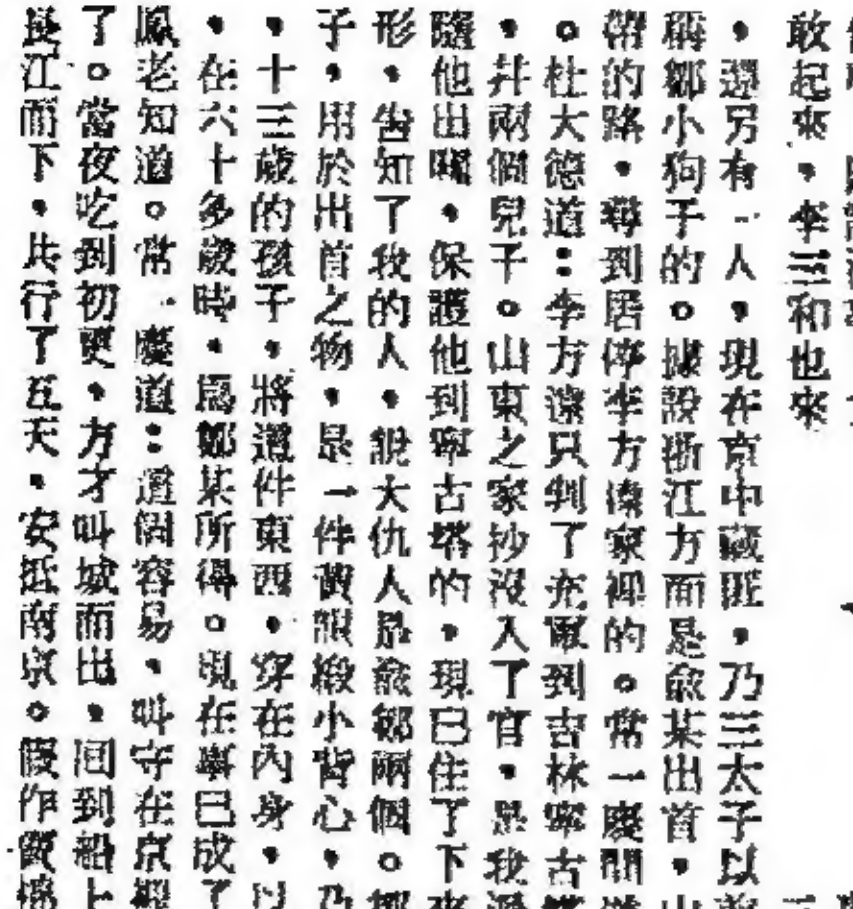 敢起來，李三和也來
，還另有一人，現在京中藏匪，乃三太子以
稱鄒小狗子的。據說浙江方面是俞某出首，
帶的路，尋到居停李方遠家裡的。常一慶問
。杜大德道：李方遠只判了充軍到吉林寧古
，幷兩個兒子。山東之家抄沒入了官，是我
隨他出關，保護他到寧古塔的，現已住了下來
形，告知了我的人，說大仇人是俞鄒兩個。
子，用於出首之物，是一件黃緞小背心，乃
，十三歲的孩子，將這件東西，穿在內身，以
，在六十多歲時，爲鄒某所得。現在事已成了
鳳老知道。常一慶道：這個容易，叫守在京裡
了。當夜吃到初更，方才叫城而出，回到船上
長江而下，共行了五天，安抵南京。假作